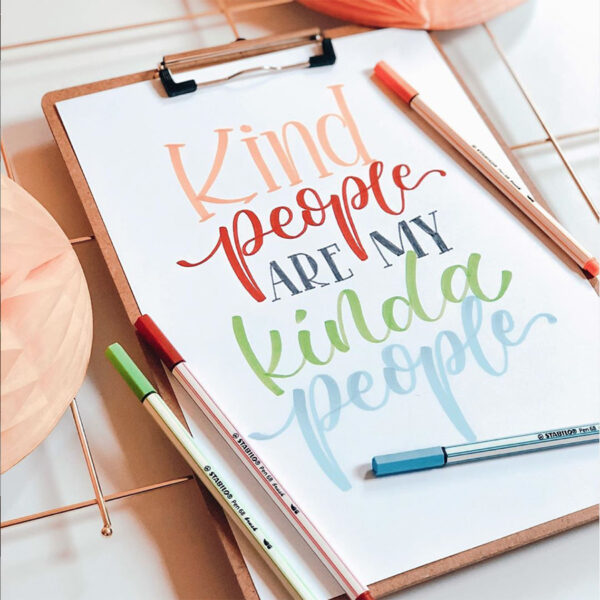 Kind
people
ARE MY
kinda
people
STABILO® Pen 68 brush
STABILO® Pen 68 brush
STABILO® Pen 68